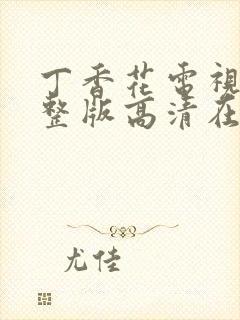 丁香花電視
整版高清在
尤佳